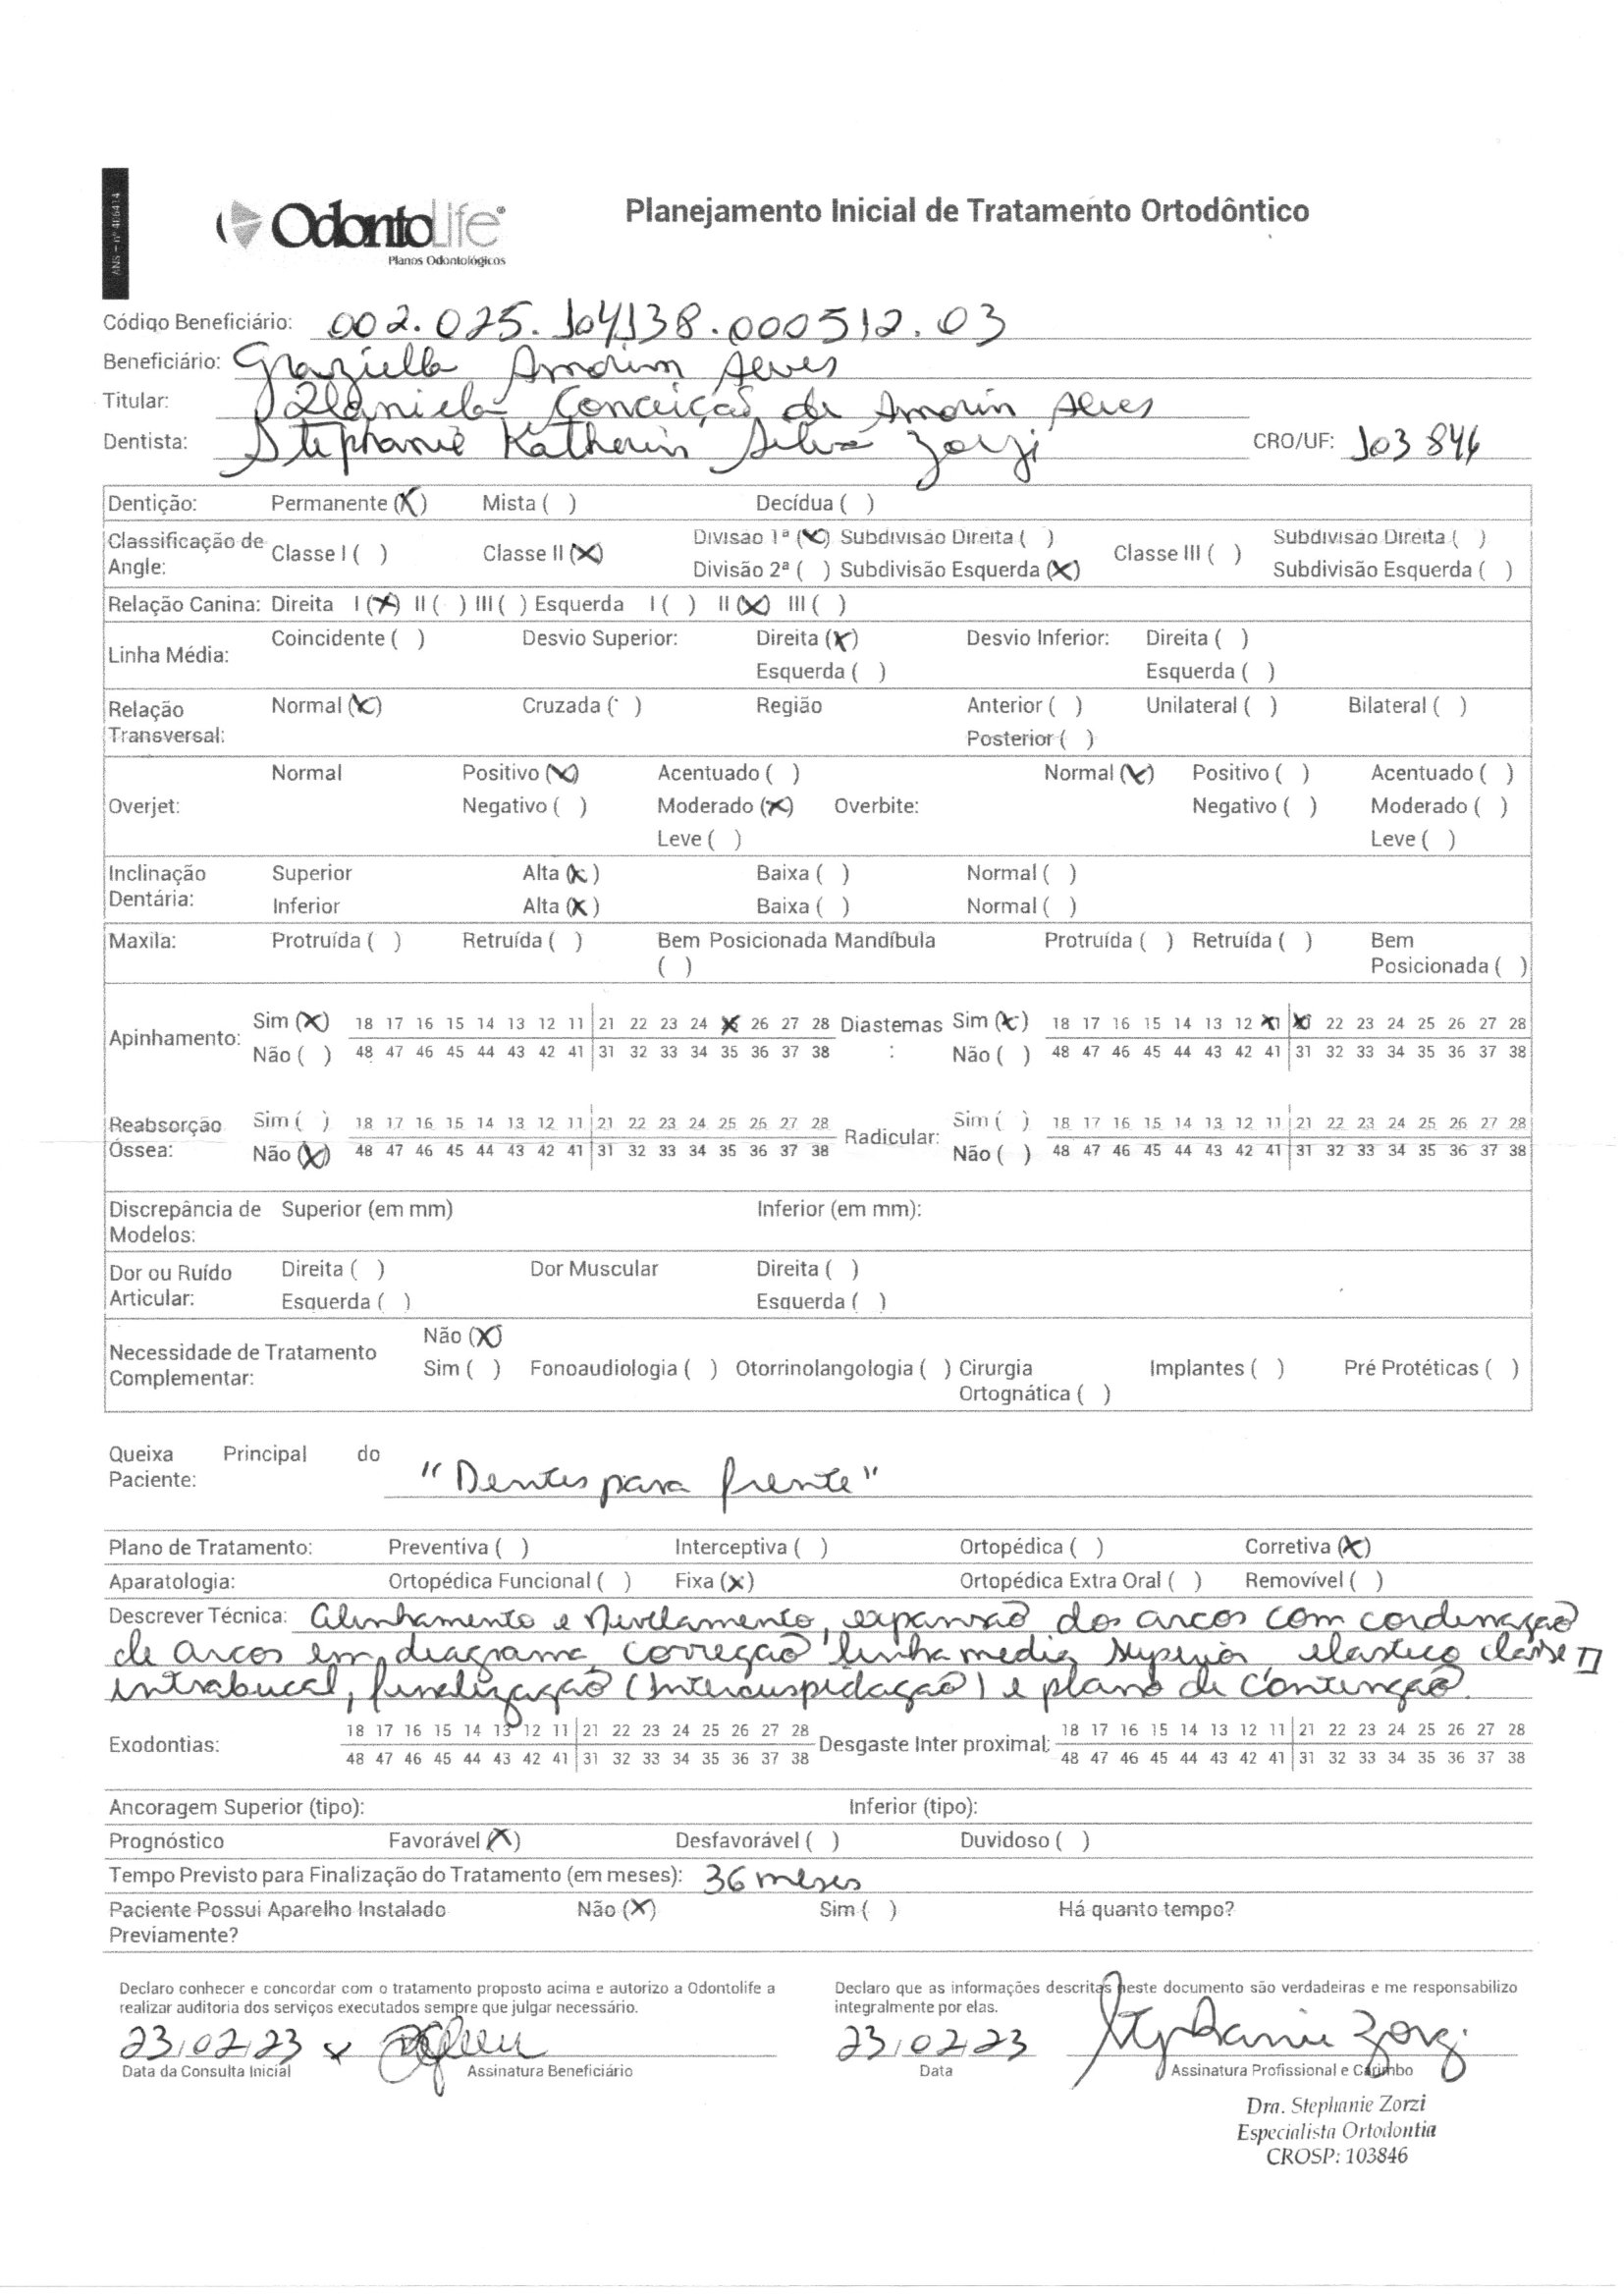 ANS - nº 406414
OdontoLife®
Planos Odontológicos
Planejamento Inicial de Tratamento Ortodôntico
Código Beneficiário: 002.025.104138.000512.03
Beneficiário: Graziella Amorim Alves
Titular: Daniela Conceição de Amorim Alves
Dentista: Stephanie Katherin Silva Zorzi CRO/UF: 103846
Dentição: Permanente (X) Mista ( ) Decídua ( )
Classificação de Angle: Classe I ( ) Classe II (X) Divisão 1ª (X) Subdivisão Direita ( ) Classe III ( ) Subdivisão Direita ( )
Divisão 2ª ( ) Subdivisão Esquerda (X) Subdivisão Esquerda ( )
Relação Canina: Direita I (X) II ( ) III ( ) Esquerda I ( ) II (X) III ( )
Linha Média: Coincidente ( ) Desvio Superior: Direita (X) Desvio Inferior: Direita ( )
Esquerda ( ) Esquerda ( )
Relação Transversal: Normal (X) Cruzada ( ) Região Anterior ( ) Unilateral ( ) Bilateral ( )
Posterior ( )
Normal Positivo (X) Acentuado ( ) Normal (X) Positivo ( ) Acentuado ( )
Overjet: Negativo ( ) Moderado (X) Overbite: Negativo ( ) Moderado ( )
Leve ( ) Leve ( )
Inclinação Dentária: Superior Alta (X) Baixa ( ) Normal ( )
Inferior Alta (X) Baixa ( ) Normal ( )
Maxila: Protruída ( ) Retruída ( ) Bem Posicionada ( ) Mandíbula Protruída ( ) Retruída ( ) Bem Posicionada ( )
Apinhamento: Sim (X) 18 17 16 15 14 13 12 11 21 22 23 24 X 26 27 28 Diastemas : Sim (X) 18 17 16 15 14 13 12 X X 22 23 24 25 26 27 28
Não ( ) 48 47 46 45 44 43 42 41 31 32 33 34 35 36 37 38 Não ( ) 48 47 46 45 44 43 42 41 31 32 33 34 35 36 37 38
Reabsorção Óssea: Sim ( ) 18 17 16 15 14 13 12 11 21 22 23 24 25 26 27 28 Radicular: Sim ( ) 18 17 16 15 14 13 12 11 21 22 23 24 25 26 27 28
Não (X) 48 47 46 45 44 43 42 41 31 32 33 34 35 36 37 38 Não ( ) 48 47 46 45 44 43 42 41 31 32 33 34 35 36 37 38
Discrepância de Modelos: Superior (em mm) Inferior (em mm):
Dor ou Ruído Articular: Direita ( ) Dor Muscular Direita ( )
Esquerda ( ) Esquerda ( )
Necessidade de Tratamento Complementar: Não (X)
Sim ( ) Fonoaudiologia ( ) Otorrinolangologia ( ) Cirurgia Ortognática ( ) Implantes ( ) Pré Protéticas ( )
Queixa Principal do Paciente: "Dentes para frente"
Plano de Tratamento: Preventiva ( ) Interceptiva ( ) Ortopédica ( ) Corretiva (X)
Aparatologia: Ortopédica Funcional ( ) Fixa (X) Ortopédica Extra Oral ( ) Removível ( )
Descrever Técnica: alinhamento e nivelamento, expansão dos arcos com cordenação
de arcos em diagrama, correção linha media superior elastico classe II
intrabucal, finalização (Intercuspidação) e plano de contenção.
Exodontias: 18 17 16 15 14 13 12 11 21 22 23 24 25 26 27 28 Desgaste Inter proximal: 18 17 16 15 14 13 12 11 21 22 23 24 25 26 27 28
48 47 46 45 44 43 42 41 31 32 33 34 35 36 37 38 48 47 46 45 44 43 42 41 31 32 33 34 35 36 37 38
Ancoragem Superior (tipo): Inferior (tipo):
Prognóstico Favorável (X) Desfavorável ( ) Duvidoso ( )
Tempo Previsto para Finalização do Tratamento (em meses): 36 meses
Paciente Possui Aparelho Instalado Previamente? Não (X) Sim ( ) Há quanto tempo?
Declaro conhecer e concordar com o tratamento proposto acima e autorizo a Odontolife a
realizar auditoria dos serviços executados sempre que julgar necessário.
23/02/23 x
Data da Consulta Inicial Assinatura Beneficiário
Declaro que as informações descritas neste documento são verdadeiras e me responsabilizo
integralmente por elas.
23/02/23 Stephanie Zorzi
Data Assinatura Profissional e Carimbo
Dra. Stephanie Zorzi
Especialista Ortodontia
CROSP: 103846